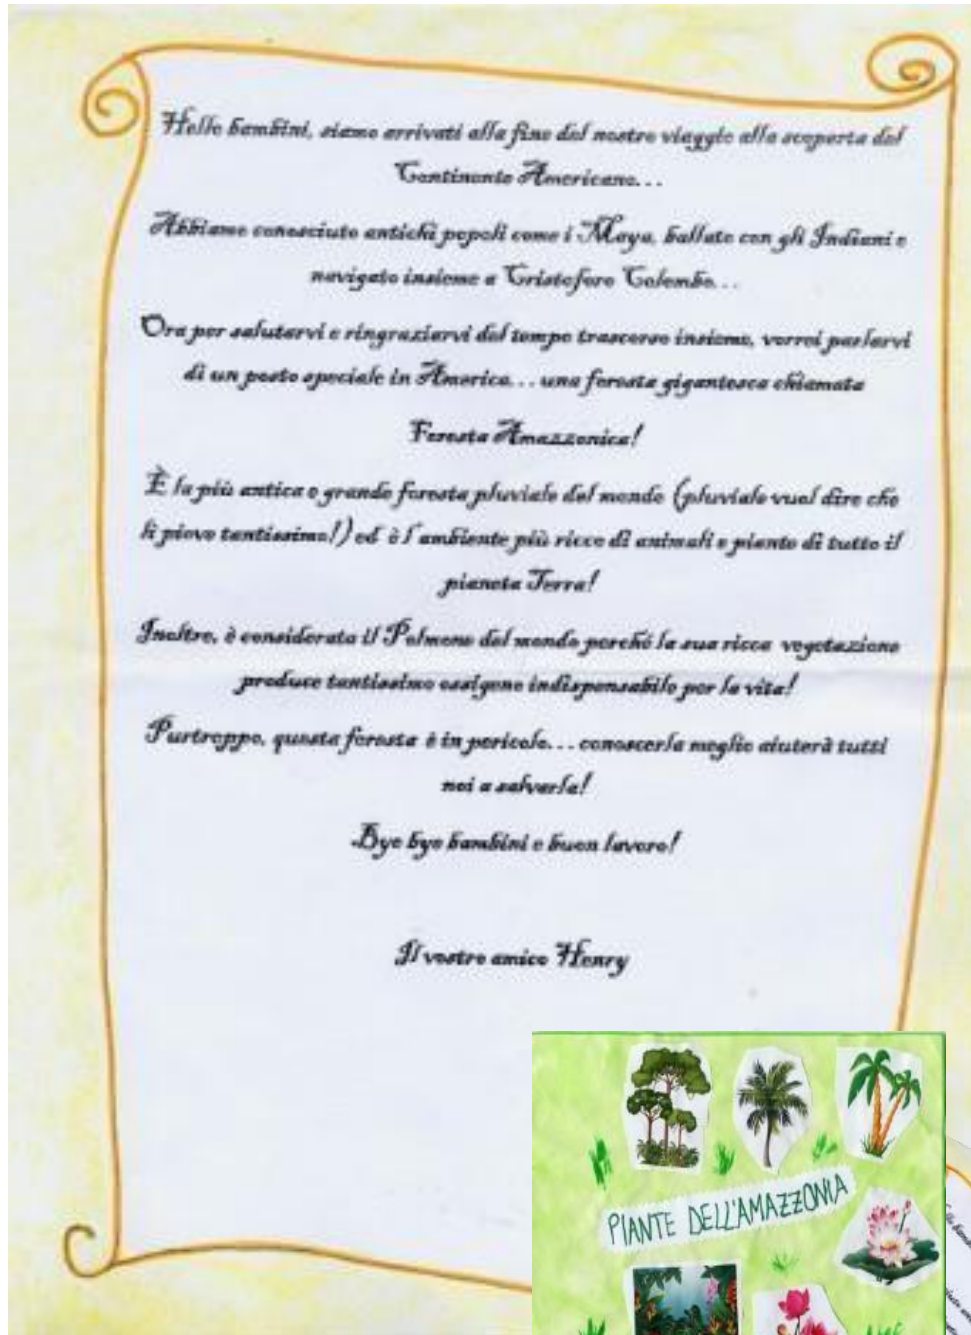 Hello bambini, siamo arrivati alla fine del nostro viaggio alla scoperta del
Continente Americano...
Abbiamo conosciuto antichi popoli come i Maya, ballato con gli Indiani e
navigato insieme a Cristoforo Colombo...
Ora per salutarvi e ringraziarvi del tempo trascorso insieme, vorrei parlarvi
di un posto speciale in America... una foresta gigantesca chiamata
Foresta Amazzonica!
È la più antica e grande foresta pluviale del mondo (pluviale vuol dire che
lì piove tantissimo!) ed è l'ambiente più ricco di animali e piante di tutto il
pianeta Terra!
Inoltre, è considerata il Polmone del mondo perché la sua ricca vegetazione
produce tantissimo ossigeno indispensabile per la vita!
Purtroppo, questa foresta è in pericolo... conoscerla meglio aiuterà tutti
noi a salvarla!
Bye bye bambini e buon lavoro!
Il vostro amico Henry
PIANTE DELL'AMAZZONIA